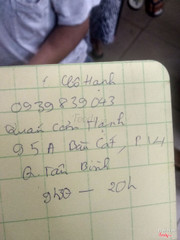 Cô Hạnh
0939839043
Quán Cơm Hạnh
95A Bàu Cát, P14
Q. Tân Bình
9h30 — 20h